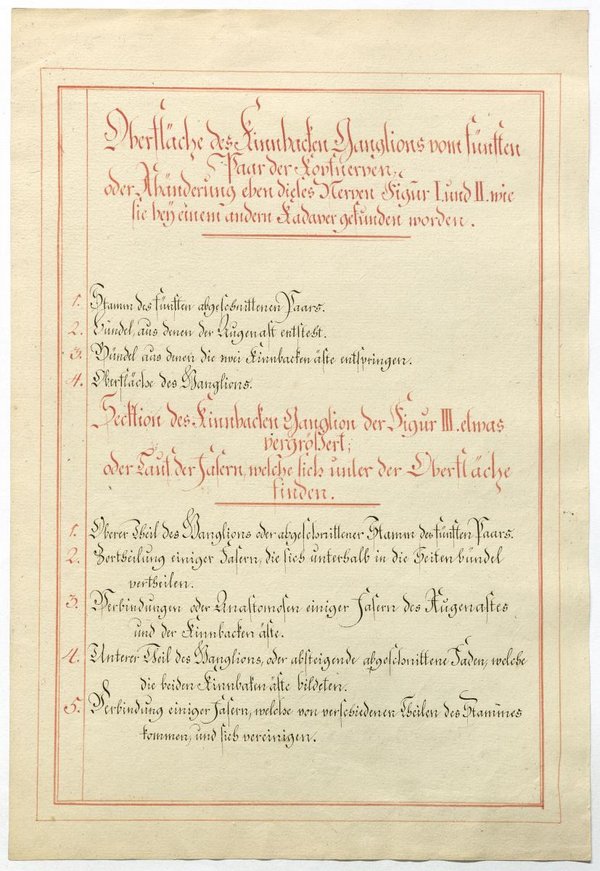 Oberfläche des Kinnbacken Ganglions vom fünften
Paar der Kopfnerven,
oder Abänderung eben dieses Nerven Figur I. und II. wie
sie bey einem andern Kadaver gefunden worden.
1. Stamm des fünften abgeschnittenen Paars.
2. Bündel, aus denen der Augenast entsteht.
3. Bündel aus denen die zwei Kinnbacken äste entspringen.
4. Oberfläche des Ganglions.
Section des Kinnbacken Ganglion der Figur III. etwas
vergrößert;
oder Lauf der Fasern, welche sich unter der Oberfläche
finden.
1. Oberer Theil des Ganglions oder abgeschnittener Stamm des fünften Paars.
2. Zertheilung einiger Fasern, die sich unterhalb in die Seiten bündel
vertheilen.
3. Verbindungen oder Anastomosen einiger Fasern des Augenastes
und der Kinnbacken äste.
4. Unterer Theil des Ganglions, oder absteigende abgeschnittene Faden, welche
die beiden Kinnbaken äste bildeten.
5. Verbindung einiger Fasern, welche von verschiedenen Theilen des Stammes
kommen, und sich vereinigen.